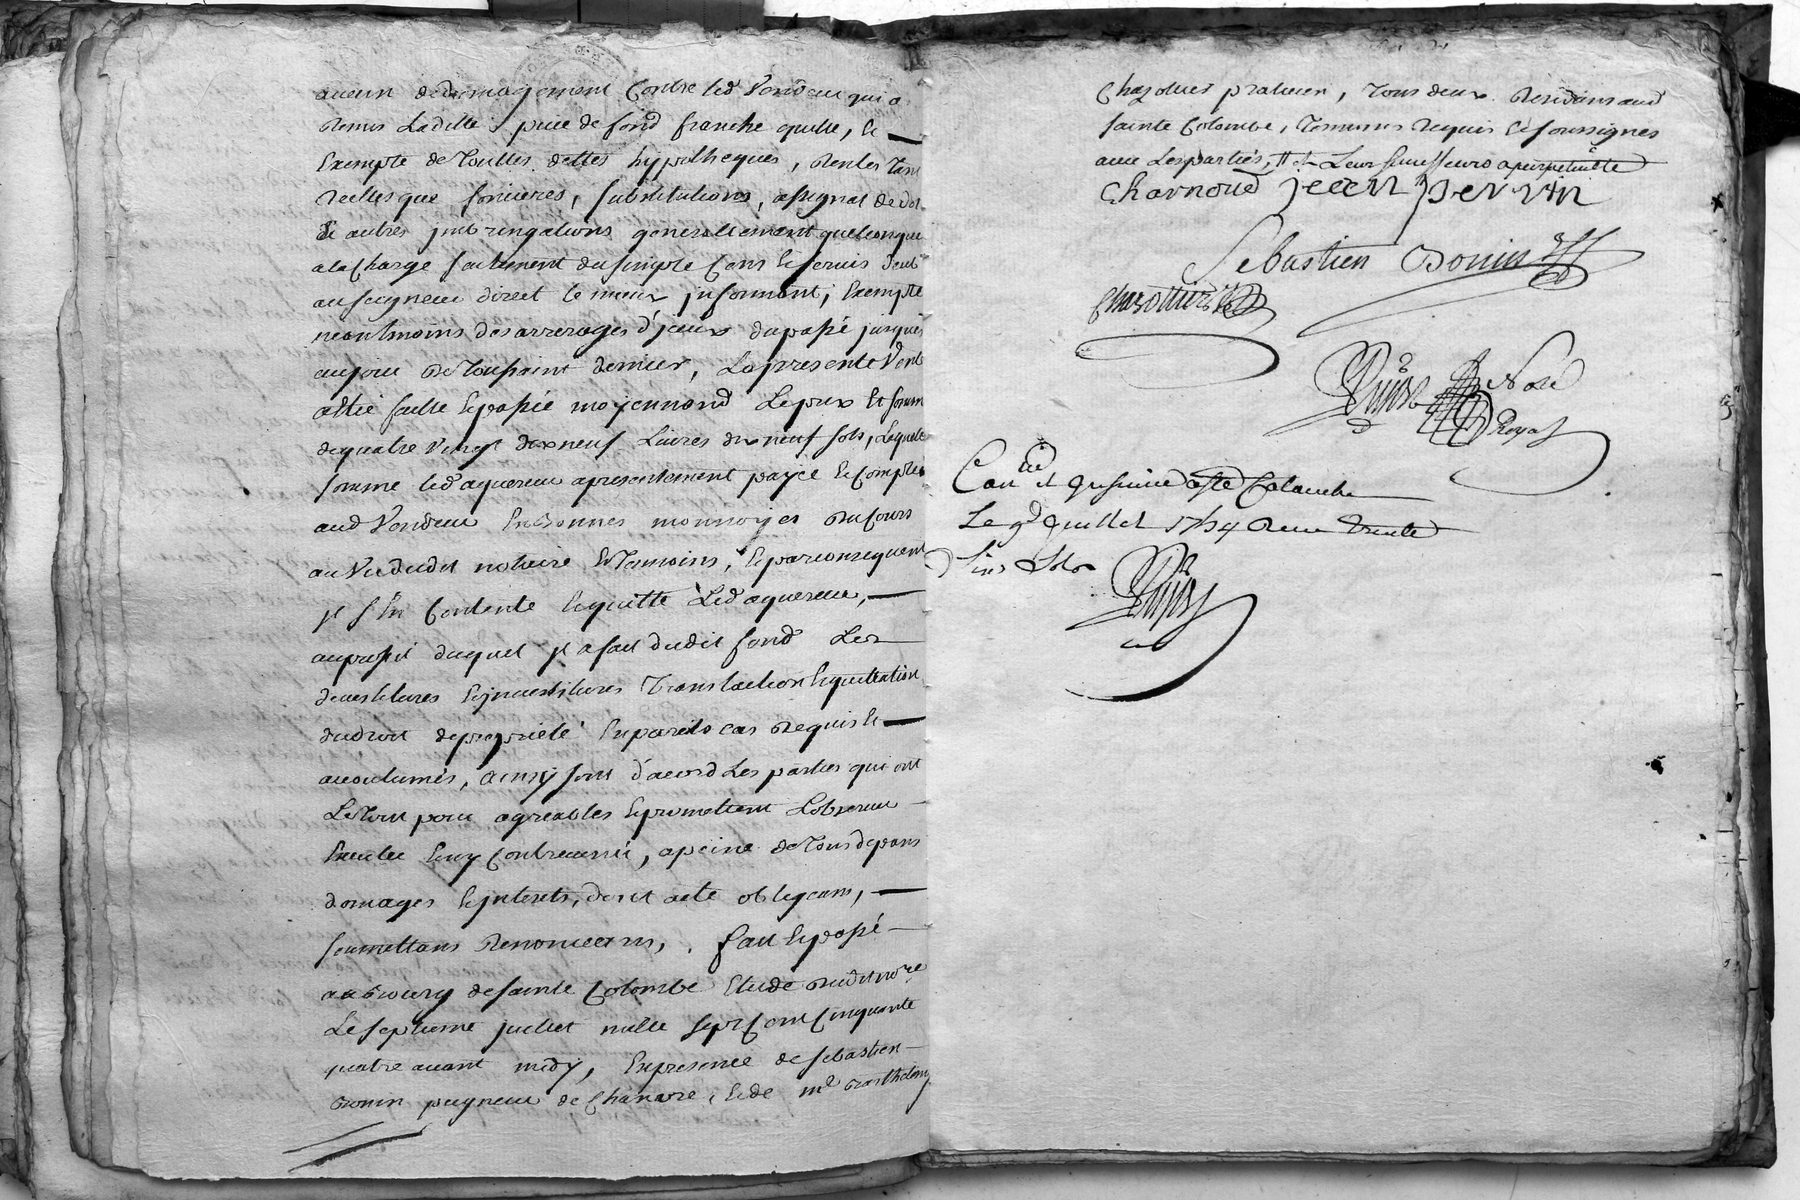 aucun dedomagement Contre led Vendeur qui a
Remis Laditte piece de fond franche quitte, et
Exempte de Touttes dettes hypotheques, Rentes Tant
reelles que foncieres, substitutions, assignat de dot
Et autres jmbringations generallement quelconque
a la Charge seulement du simple Cens et servis deub
au seigneur direct le mieux jnformant, Exempte
neantmoins des arrerages d'jceux du passé jusques
au jour de Toussaint dernier, La presente Vente
a été faitte et passée moyennand Le prix Et somme
de quatre Vingt dix neuf Livres dix neuf sols, Laquelle
somme led aquereur a presentement payée et Comptée
aud Vendeur En Bonnes monnoyes du Cours
au Vu dudit notaire et Temoins, et par consequent
jl s'En Contente et quitte Led aquereur,
au profit duquel jl a fait dudit fond Les
devestitures et jnvestitures Translation et
du droit de proprieté En pareils cas Requis et
acoutumés, ainsy sont d'acord Les parties qui ont
Le Tout pour agreables et promettent L'observer
Executer et n'y Contrevenir, a peine de Tous depans
domages et jnterets, dont acte obligeans,
soumettans Renonceans, fait et passé
au Bourg de sainte Colombe Etude dudit nore
Le septieme juillet mille sept Cent Cinquante
quatre avant midy, En presence de sebastien
Bonin peigneur de Chanvre, et de me Barthelemy
Chazottier praticien, Tous deux Residans aud
sainte Colombe, Temoins Requis et soussignés
avec Les parties, et Leur successeurs a perpetuitte
Charnoud jeen pervrin
Sebastien Bonin
Chazottier
Nore
Royal
Con lé et jnsinué a Ste Colombe
Le 9e Juillet 1754 Receu Trente
Six Sols